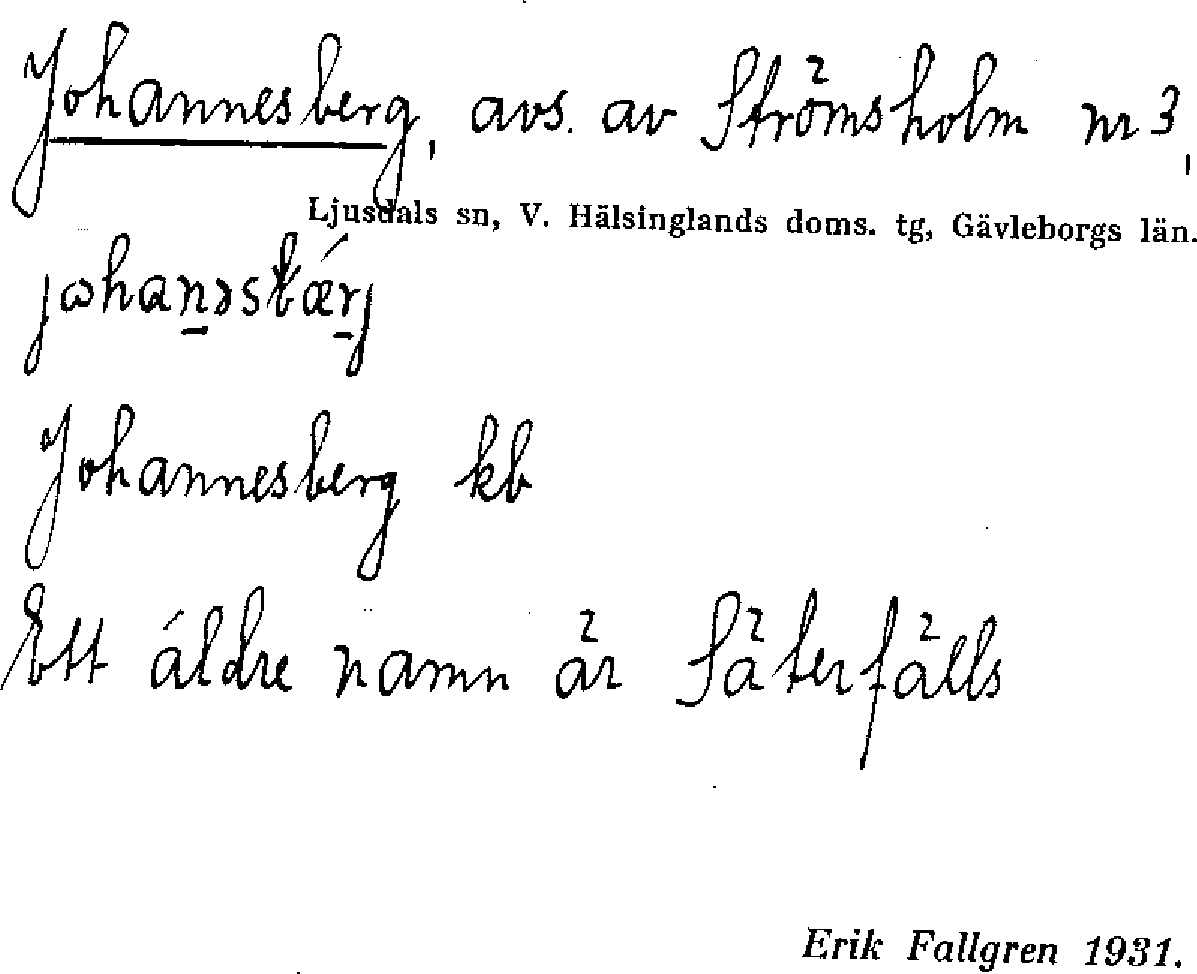 Johannesberg, avs. av Strömsholm nr 3,
Ljusdals sn, V. Hälsinglands doms. tg, Gävleborgs län.
jωhan̲əsbǽr̲j
Johannesberg kb
Ett äldre namn är Säterfälls
Erik Fallgren 1931.